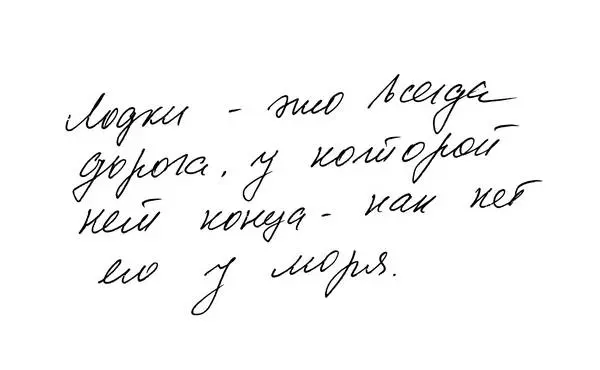 Лодки - это всегда
дорога, у которой
нет конца - как нет
его у моря.